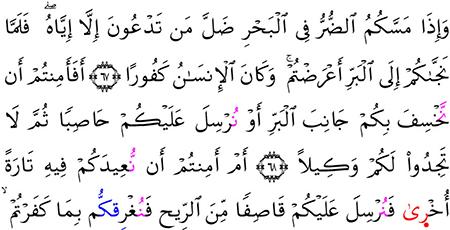 وَإِذَا مَسَّكُمُ ٱلضُّرُّ فِى ٱلْبَحْرِ ضَلَّ مَن تَدْعُونَ إِلَّآ إِيَّاهُ ۖ فَلَمَّا
نَجَّىٰكُمْ إِلَى ٱلْبَرِّ أَعْرَضْتُمْ ۚ وَكَانَ ٱلْإِنسَـٰنُ كَفُورًا ﴿٦٧﴾ أَفَأَمِنتُمْ أَن
نَّخْسِفَ بِكُمْ جَانِبَ ٱلْبَرِّ أَوْ نُرْسِلَ عَلَيْكُمْ حَاصِبًا ثُمَّ لَا
تَجِدُوا۟ لَكُمْ وَكِيلًا ﴿٦٨﴾ أَمْ أَمِنتُمْ أَن نُّعِيدَكُمْ فِيهِ تَارَةً
أُخْرِىٰ فَنُرْسِلَ عَلَيْكُمْ قَاصِفًا مِّنَ ٱلرِّيحِ فَنُغْرِقَكُّم بِمَا كَفَرْتُمْ ۙ